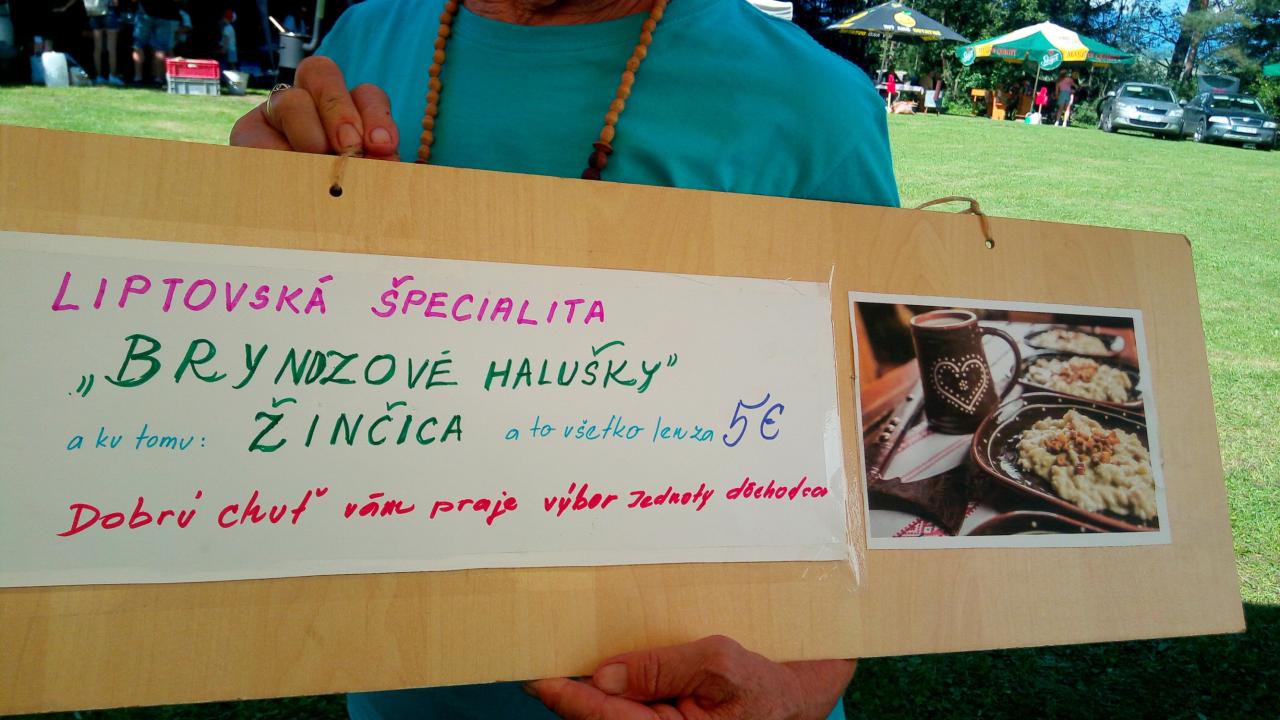 LIPTOVSKÁ ŠPECIALITA
„BRYNDZOVÉ HALUŠKY"
a ku tomu: ŽINČICA a to všetko len za 5€
Dobrú chuť vám praje výbor Jednoty dôchodcov